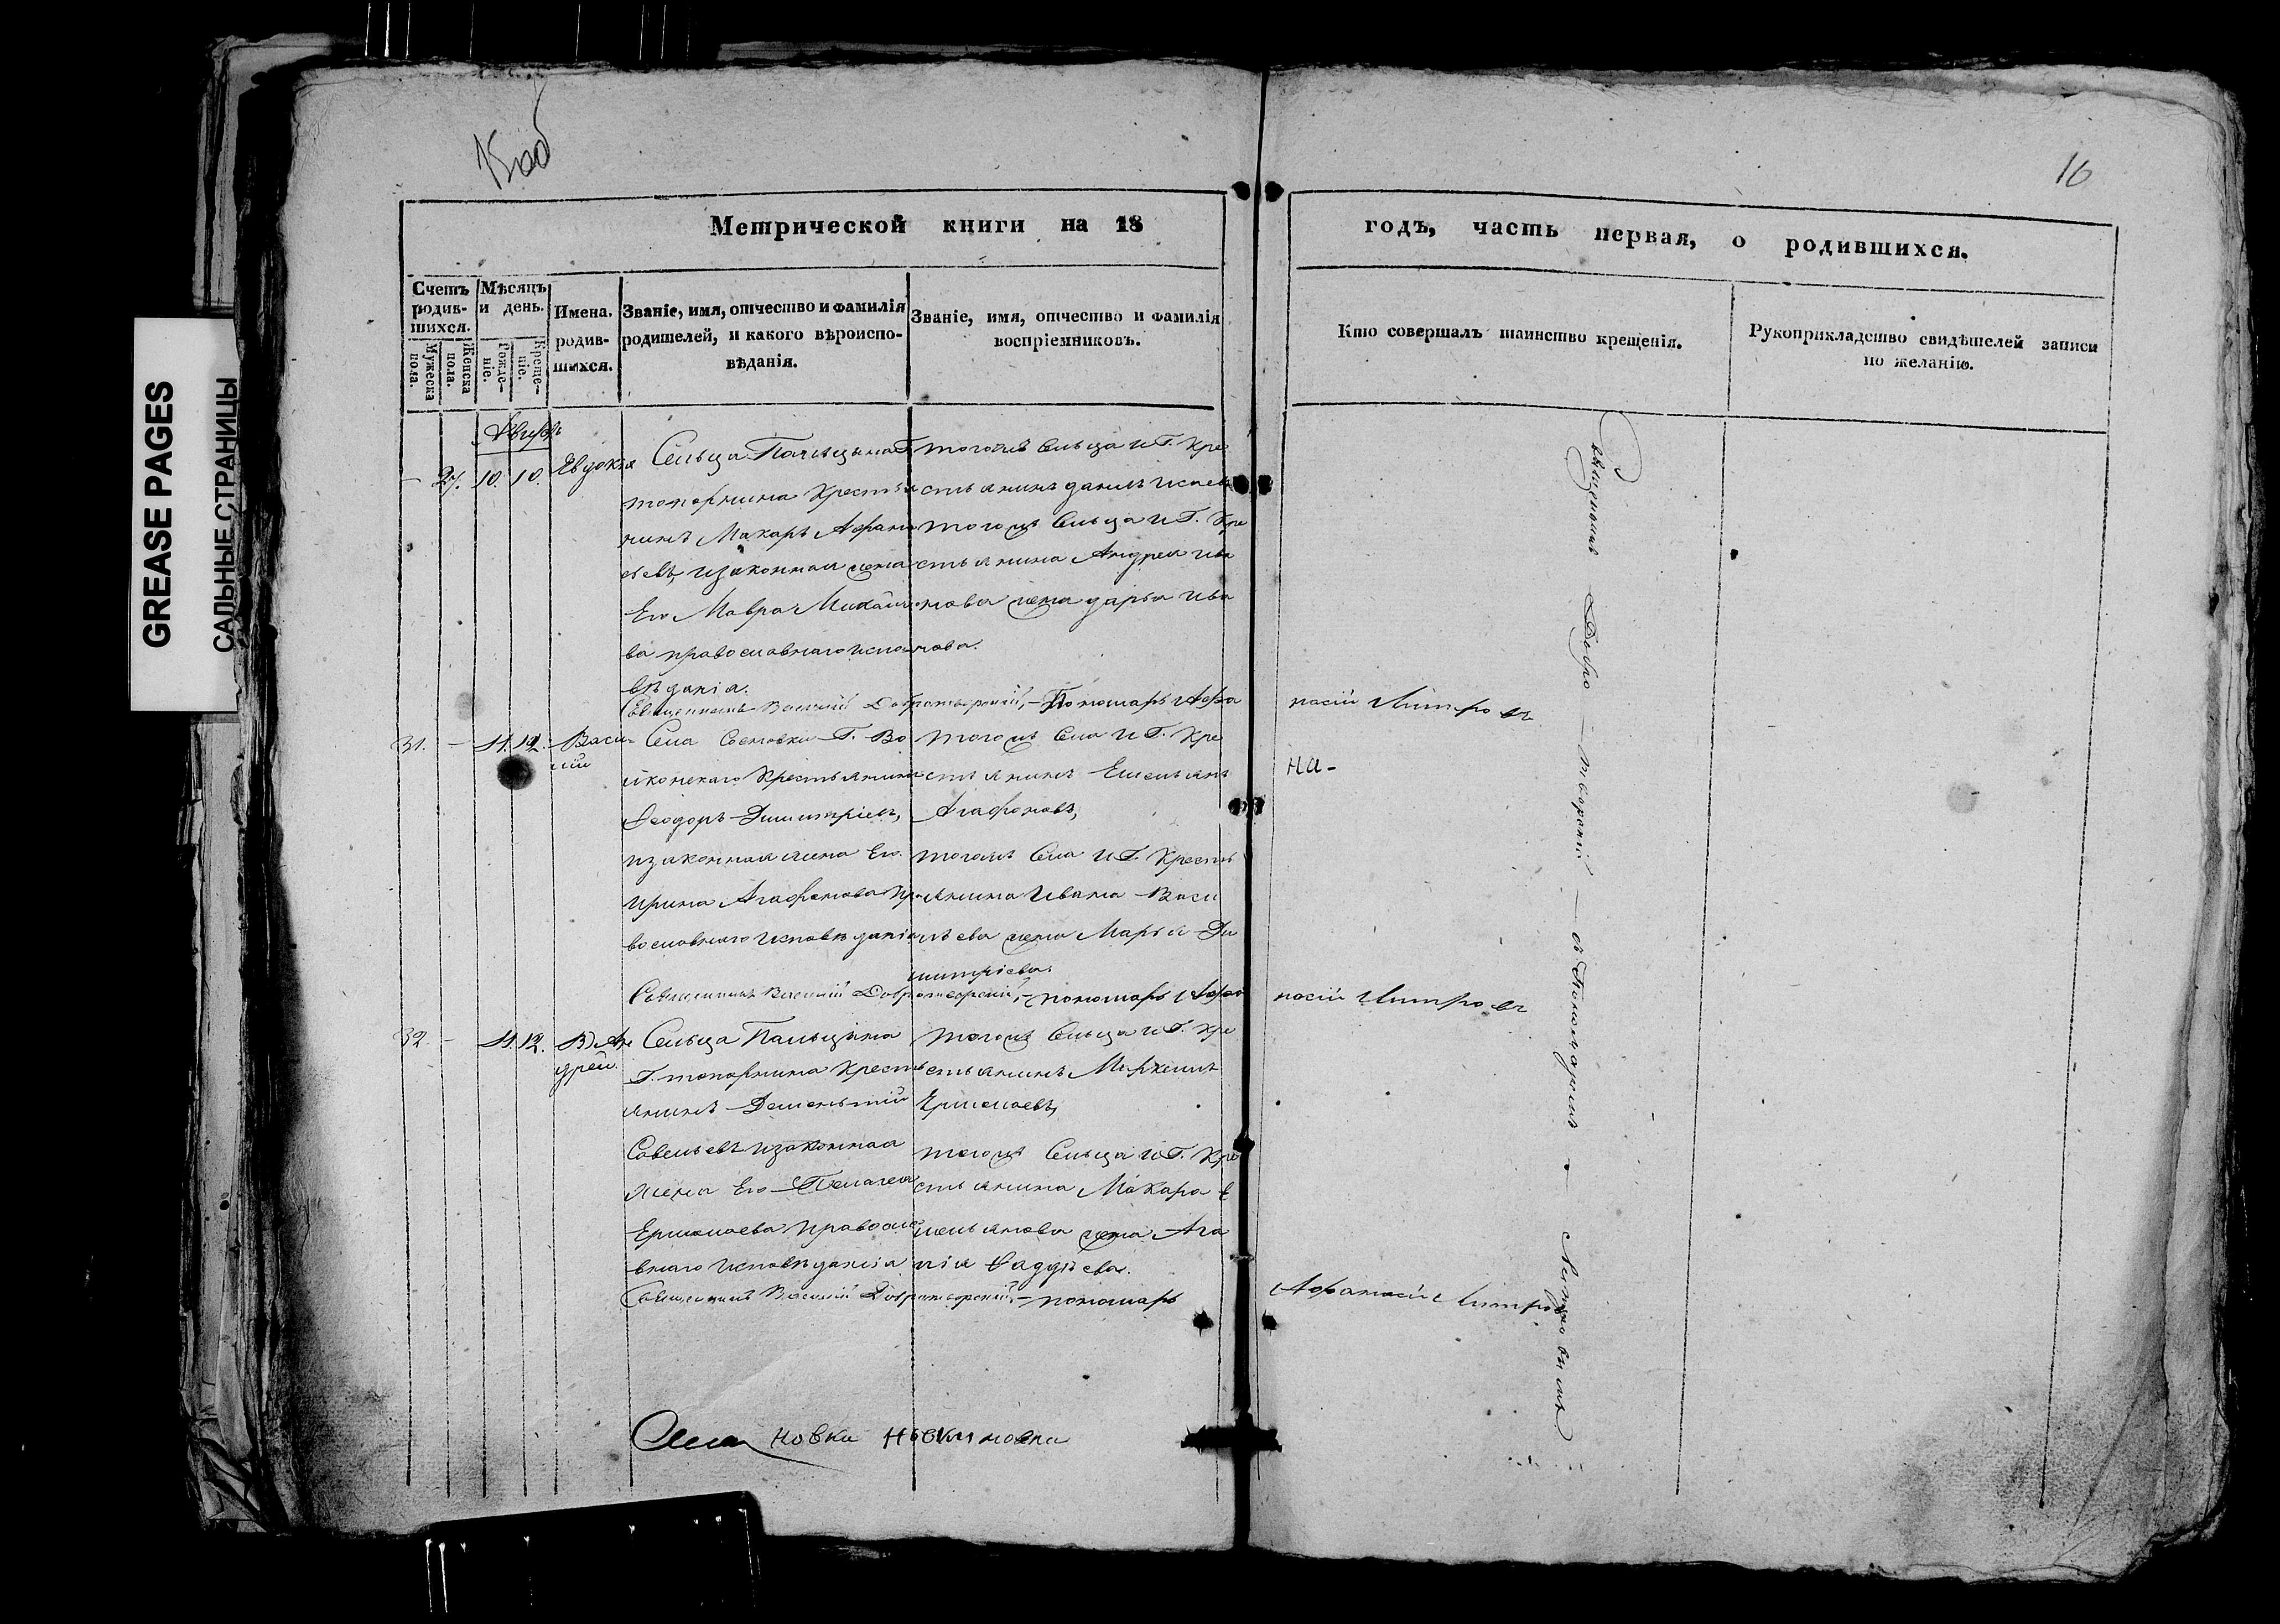 GREASE PAGES
САЛЬНЫЕ СТРАНИЦЫ
16
Метрической книги на 18
годъ, часть первая, о родившихся.
Счетъ родив-
шихся.
Мужеска пола.
Женска пола.
Мѣсяцъ
и день.
Рожде-
нiе.
Креще-
нiе.
Имена.
родив-
шихся.
Званiе, имя, отчество и фамилiя
родителей, и какого вѣроиспо-
вѣданiя.
Званiе, имя, отчество и фамилiя
воспрiемниковъ.
Кто совершалъ таинство крещенiя.
Рукоприкладство свидѣтелей записи
по желанiю.
— 27. 10. 10. Евдокiя
Сельца Пальцына Г.
топорнина Крестья
нинъ Макаръ Афана
сьевъ, и законная жена
Его Мавра Михайло
ва православнаго испо
вѣданiя.
тогожъ Сельца и Г. Кре
стьянинъ данилъ Исаевъ
тогожъ Сельца и Г. Кре
стьянина Андрея Ива
нова жена дарья Ива
нова.
Священникъ Василiй Добротворскiй, — Пономарь Афа
насiй
31. — 11. 12. Васи
лiй
Села Г. Во
йконскаго Крестьянина
Ѳеодоръ Димитрiевъ,
и законная жена Его
Ирина Агафонова Пра
вославнаго исповѣданiя
тогожъ Села и Г. Кре
стьянинъ Емельянъ
Агафоновъ,
тогожъ Села и Г. Кресть
янина Ивана Васи
льева жена Марья Ди
митрiева.
на-
Священникъ Василiй Добротворскiй, — пономарь Афа
насiй
32. — 11. 12. Ан
дрей.
Сельца Пальцына
Г. топорнина Кресть
янинъ Дементiй
Савельевъ и законная
жена Его Пелагея
Ермолаева Правосла
внаго исповѣданiя
тогожъ Сельца и Г. Кре
стьянинъ Меркелъ
Ермолаевъ,
тогожъ Сельца и Г. Кре
стьянина Макара Е
мельянова жена Ага
пiя Фаддѣева.
Священникъ Василiй Добротворскiй, — пономарь
Афанасiй
Священникъ — Добро — творскiй — съ Пономаремъ —
новки